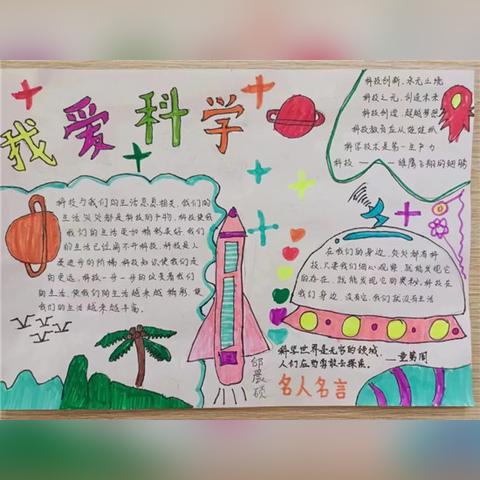 我爱科学
科技创新，永无止境
科技之光，创造未来
科技创造，超越梦想
科技教育应从娃娃抓
科学技术是第一生产力
科技 —— 雄鹰飞翔的翅膀
科技与我们的生活息息相关，我们的
生活处处都是科技的产物，科技使我
我们的生活更加精彩美好，我们
的生活已经离不开科技，科技是人
类进步的阶梯，科技知识使我们走
的更远，科技一步一步的改变着我们
的生活，使我们的生活越来越精彩，使
我们的生活越来越丰富。
在我们的身边，处处都有科
技，只要我们细心观察，就能发现它
的存在，就能发现它的奥秘，科技在
我们身边，没有它，我们就没有生活
科学世界是无穷的领域，
人们应当勇敢去探索。
——童第周
名人名言
邰晨硕